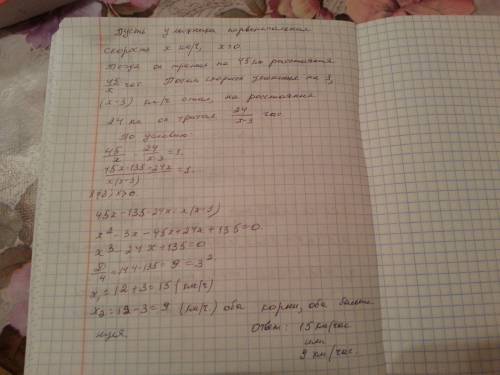 Пусть у лыжника первоначальная
скорость x км/ч, x>0
Тогда он тратил на 45 км расстояния
45/x час. После скорость уменьшил на 3,
(x-3) км/ч стал, на расстояния
24 км он тратил 24/x-3 час
По условию
45/x 24/x-3 = 1
45x-135-24x/x(x-3) = 1
x≠3; x>0
45x-135-24x = x(x-3)
x²-3x-45x+24x+135=0
x²-24x+135=0
D/4=144-135=9=3²
x₁=12+3=15 (км/ч)
x₂=12-3=9 (км/ч) оба корни, оба больше
нуля.
Ответ: 15 км/час
или
9 км/час